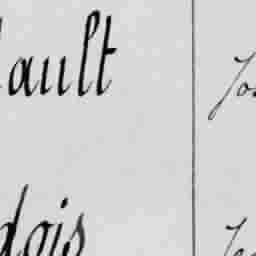 ault Jos
dois Je